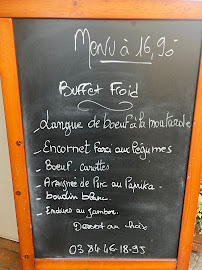 Menu à 16,90
Buffet Froid
_ Langue de boeuf à la moutarde
_ Encornet Farci aux légumes
_ Boeuf carottes
_ Araignée de Porc au Paprika.
_ boudin blanc.
_ Endives au jambon.
Dessert au choix
03 84 46-18-95